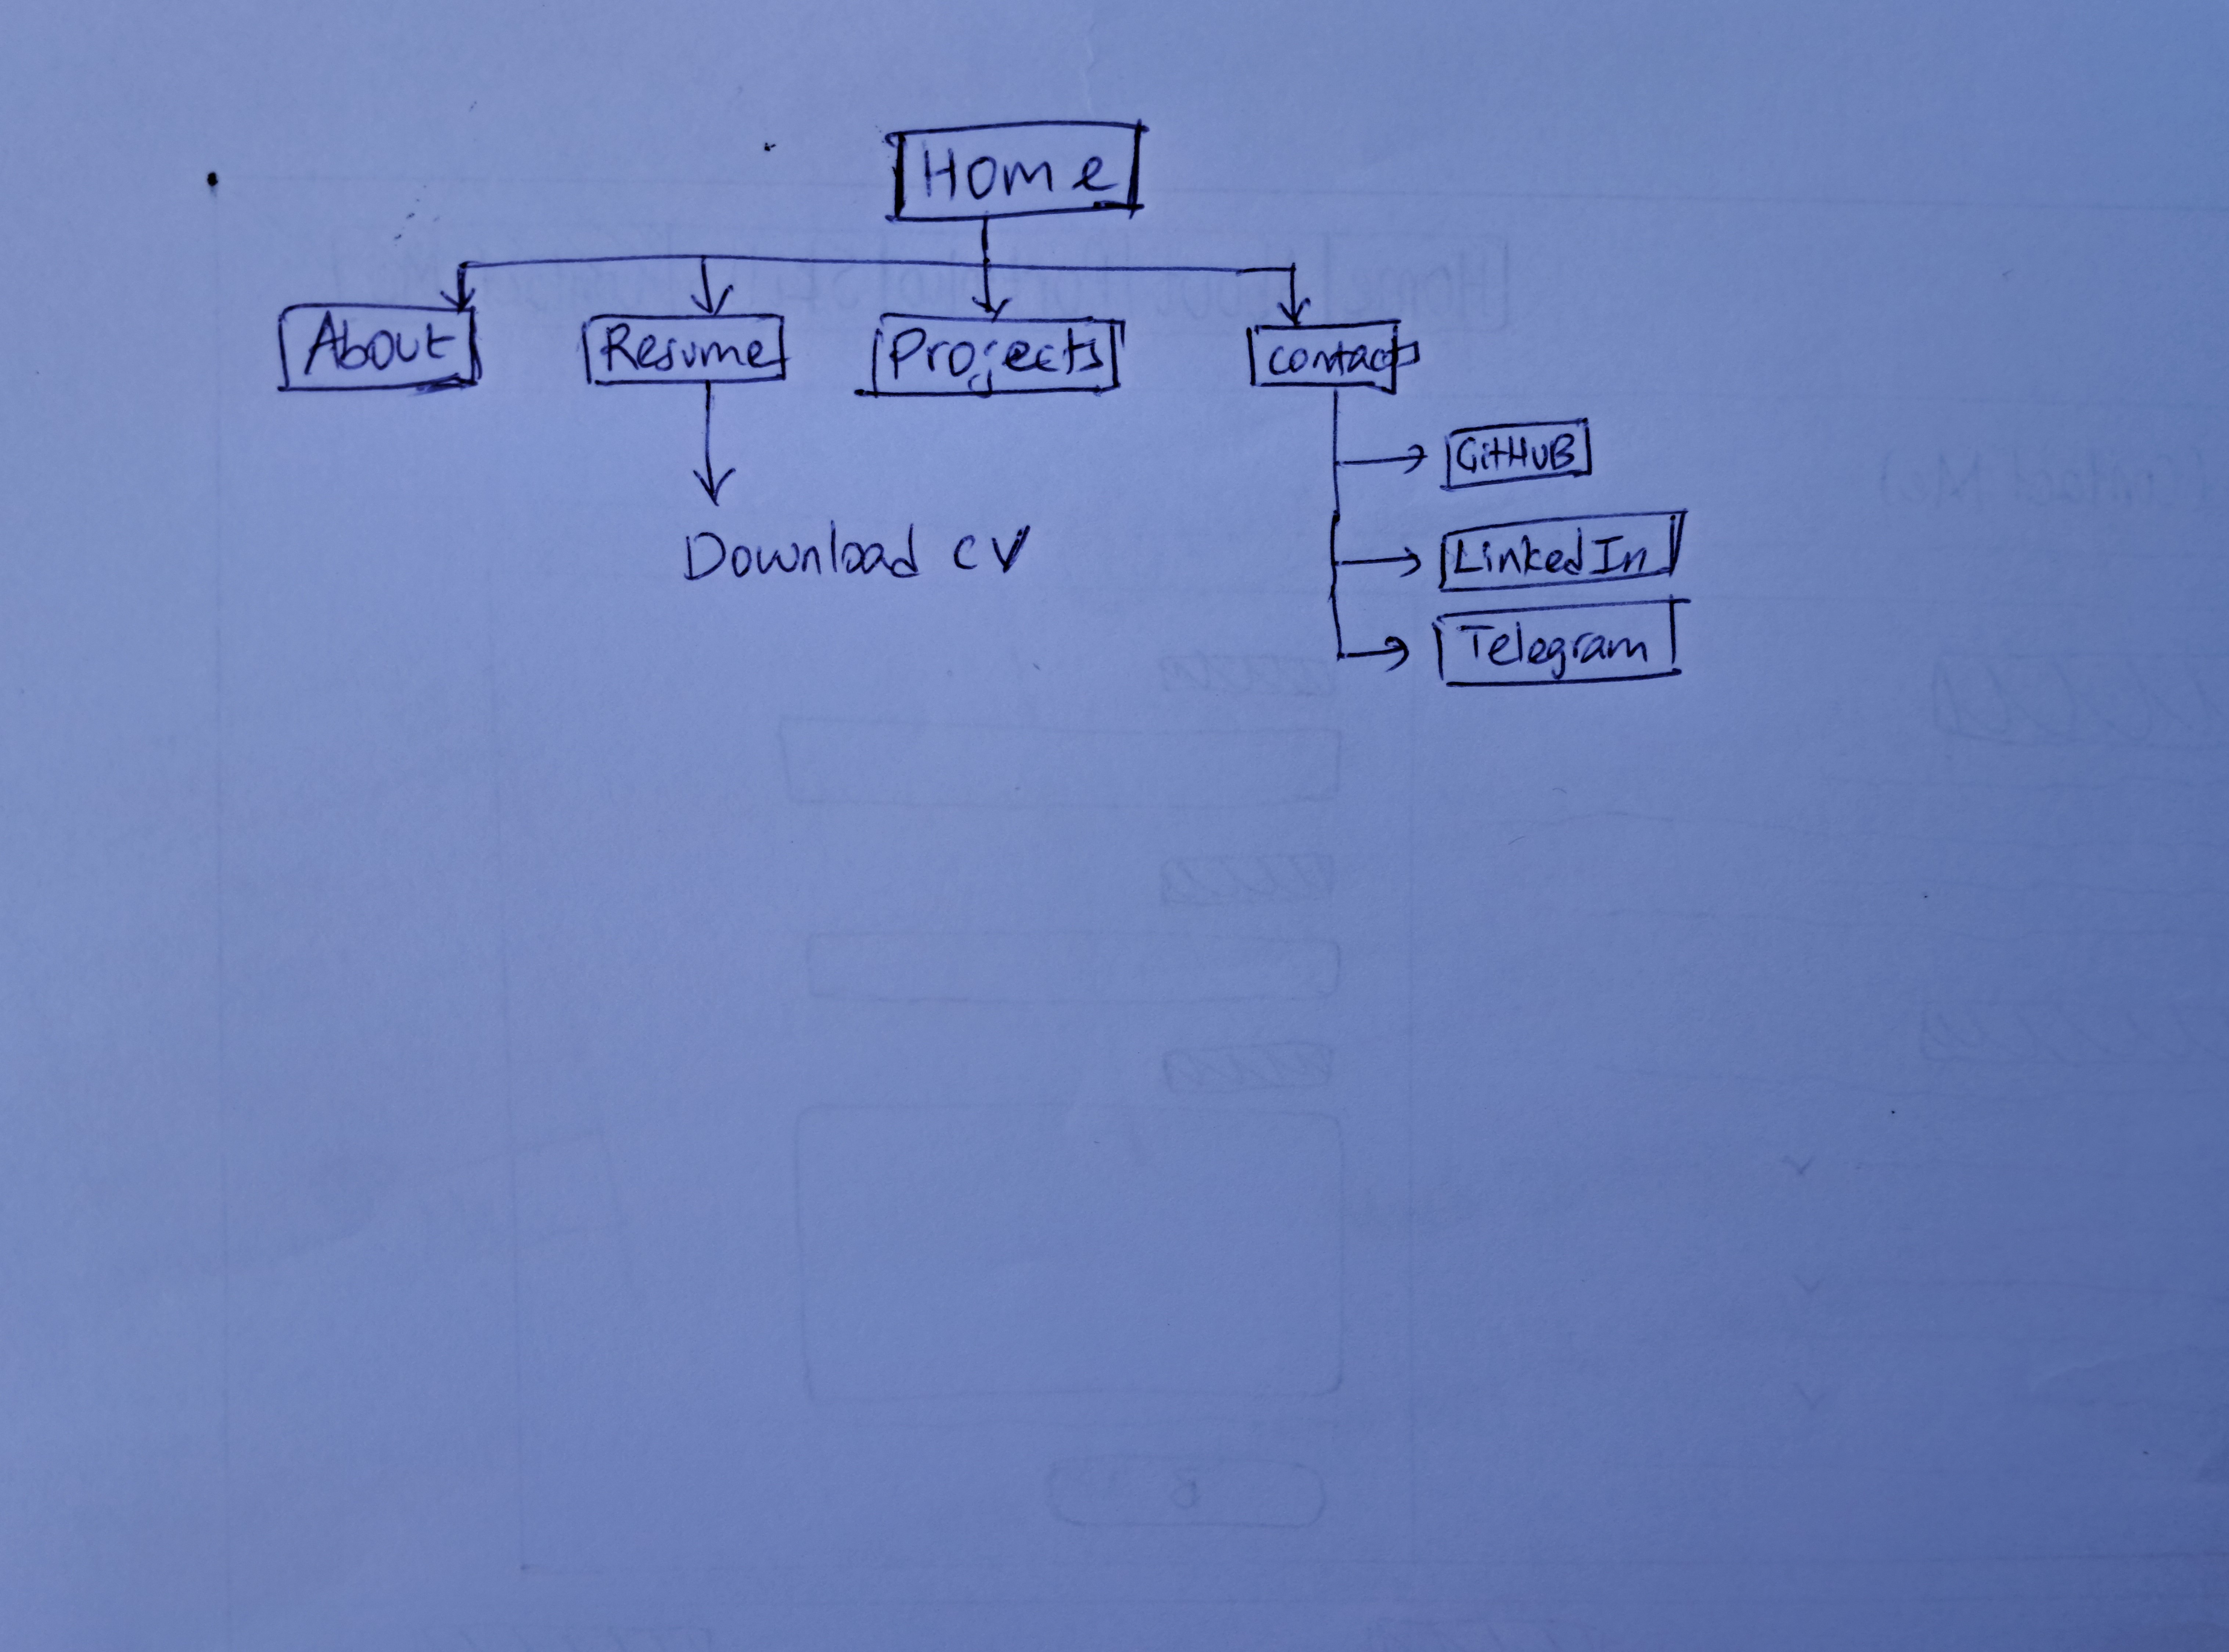 Home
About
Resume
Projects
contact
GitHUB
Download CV
LinkedIn
Telegram